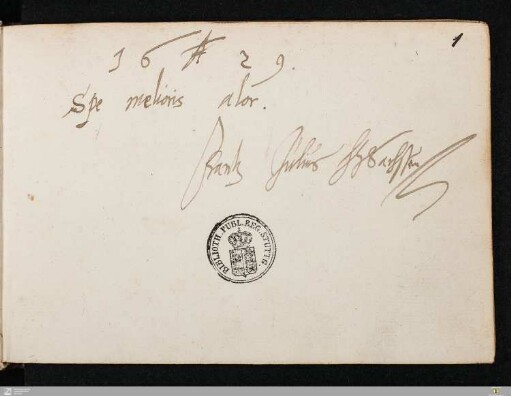 1
16 29.
Spe melioris alor.
Frantz Julius HZSachssen
BIBLIOTH. PUBL. REG. STUTTG.